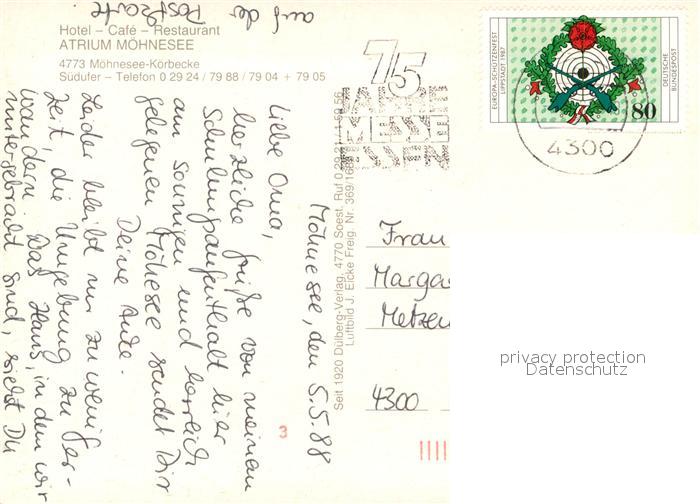 Hotel – Café – Restaurant
ATRIUM MÖHNESEE
4773 Möhnesee-Körbecke
Südufer – Telefon 0 29 24 / 79 88 / 79 04 + 79 05
Möhnesee, den 5.5.88
Liebe Oma,
herzliche Grüße von meinem
Schulungsaufenthalt hier
am sonnigen und herrlich
gelegenen Möhnesee sendet Dir
Deine Ande.
Leider bleibt nur zu wenig
Zeit, die Umgebung zu er-
wandern. Das Haus, in dem wir
untergebracht sind, siehst Du
auf der
Postkarte.
Seit 1920 Dülberg-Verlag, 4770 Soest, Ruf 0 29 21
Luftbild J. Eicke Freig. Nr. 369/168
75
JAHRE
MESSE
ESSEN
EUROPA-SCHÜTZENFEST
LIPPSTADT 1987
DEUTSCHE
BUNDESPOST
80
4300
Frau
Marga
Metzen
4300
3
privacy protection
Datenschutz